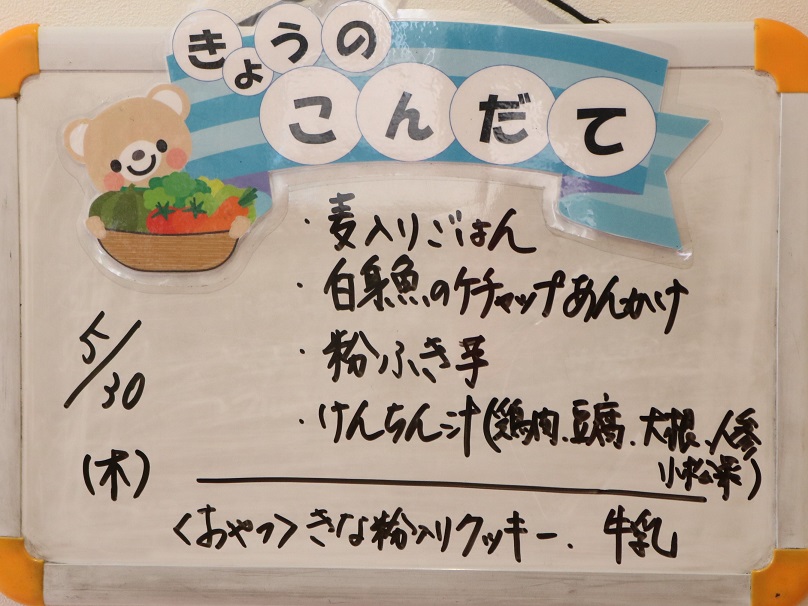 きょうの
こんだて
5/30
(木)
・麦入りごはん
・白身魚のケチャップあんかけ
・粉ふき芋
・けんちん汁(鶏肉、豆腐、大根、人参
小松菜)
<おやつ> きな粉入りクッキー、牛乳